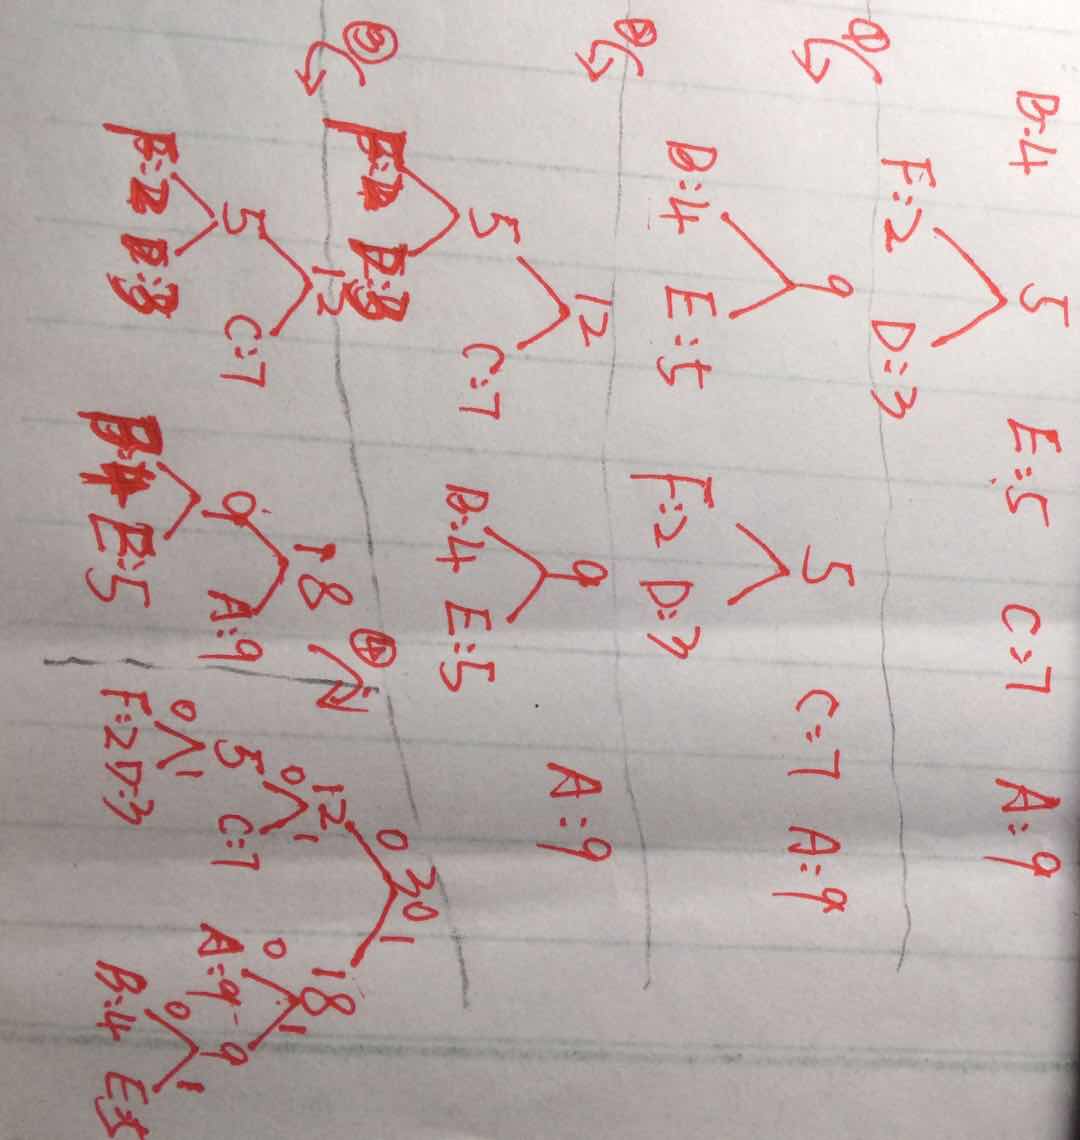 B:4 5 E:5 C:7 A:9
F:2 D:3
①
9 5 C:7 A:9
B:4 E:5 F:2 D:3
②
12 9 A:9
5 C:7 B:4 E:5
③
12 18 ④ 30
5 C:7 9 A:9 0 1
E:5 12 18
0 1 0 1
5 C:7 A:9 9
0 1 0 1
F:2 D:3 B:4 E:5